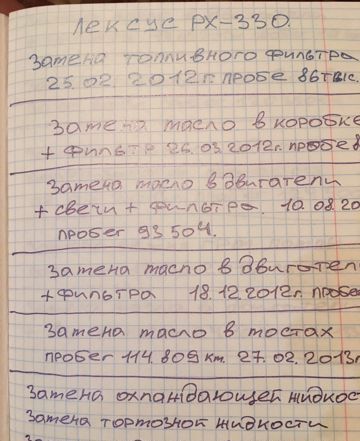 Лексус РХ-330.
Замена топливного фильтра
25.02.2012г. пробе 86тыс.
Замена масло в коробке
+ фильтр 26.03.2012г. пробе 8
Замена масло в двигатели
+ свечи + фильтра. 10.08.20
пробег 93504.
Замена масло в двигател
+ фильтра 18.12.2012г. пробе
Замена масло в мостах
пробег 114.809 км. 27.02.2013г
Замена охлаждающей жидкос
Замена тормозной жидкости